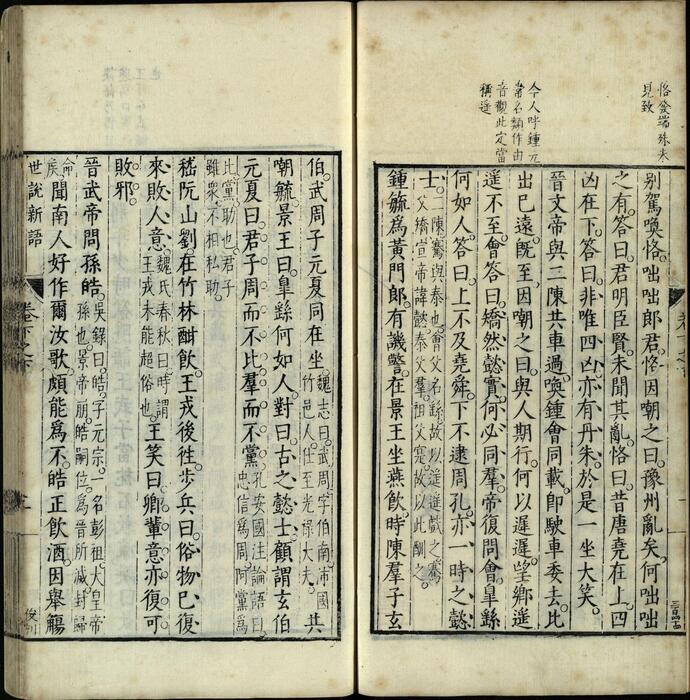 恪發端殊未
見致
今人呼鍾元
常名類作由
音觀此定當
稱遙
别駕喚恪咄咄郎君恪因嘲之曰豫州亂矣何咄咄
之有答曰君明臣賢未聞其亂恪曰昔唐堯在上四
凶在下答曰非唯四凶亦有丹朱於是一坐大笑
晉文帝與二陳共車過喚鍾會同載卽駛車委去比
出已遠旣至因嘲之曰與人期行何以遲遲望卿遥
遥不至會答曰矯然懿實何必同羣帝復問會臯繇
何如人答曰上不及堯舜下不逮周孔亦一時之懿
士二陳騫與泰也會父名繇故以遥遥戲之騫
父矯宣帝諱懿泰父羣祖父寔故以此酬之
鍾毓爲黃門郎有譏警在景王坐燕飲時陳羣子玄
伯武周子元夏同在坐魏志曰武周字伯南沛國
竹邑人仕至光祿大夫共
嘲毓景王曰臯繇何如人對曰古之懿士顧謂玄伯
元夏曰君子周而不比羣而不黨孔安國注論語曰
忠信爲周阿黨爲
比黨助也君子
雖衆不相私助
嵇阮山劉在竹林酣飲王戎後徃步兵曰俗物已復
來敗人意魏氏春秋曰時謂
王戎未能超俗也王笑曰卿輩意亦復可
敗邪
晉武帝問孫皓吳錄曰皓字元宗一名彭祖大皇帝
孫也景帝崩皓嗣位爲晉所滅封歸
命
侯聞南人好作爾汝歌頗能爲不皓正飲酒因舉觴
世說新語
卷下之下